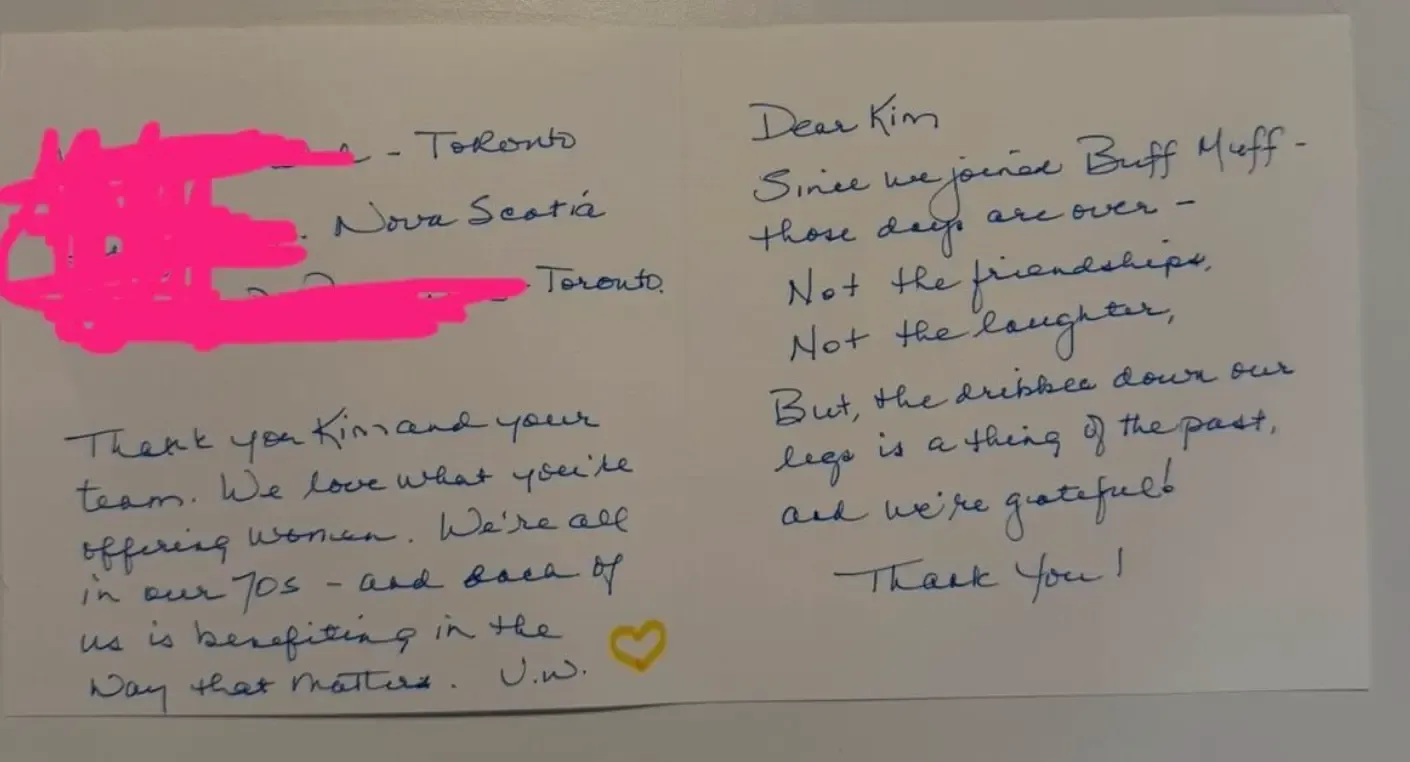 - Toronto
. Nova Scotia
- Toronto.
Thank you Kim and your
team. We love what you're
offering women. We're all
in our 70s - and each of
us is benefiting in the
way that matters. V.W.
Dear Kim
Since we joined Buff Muff -
those days are over -
Not the friendships,
Not the laughter,
But, the dribble down our
legs is a thing of the past,
and we're grateful!
Thank you!